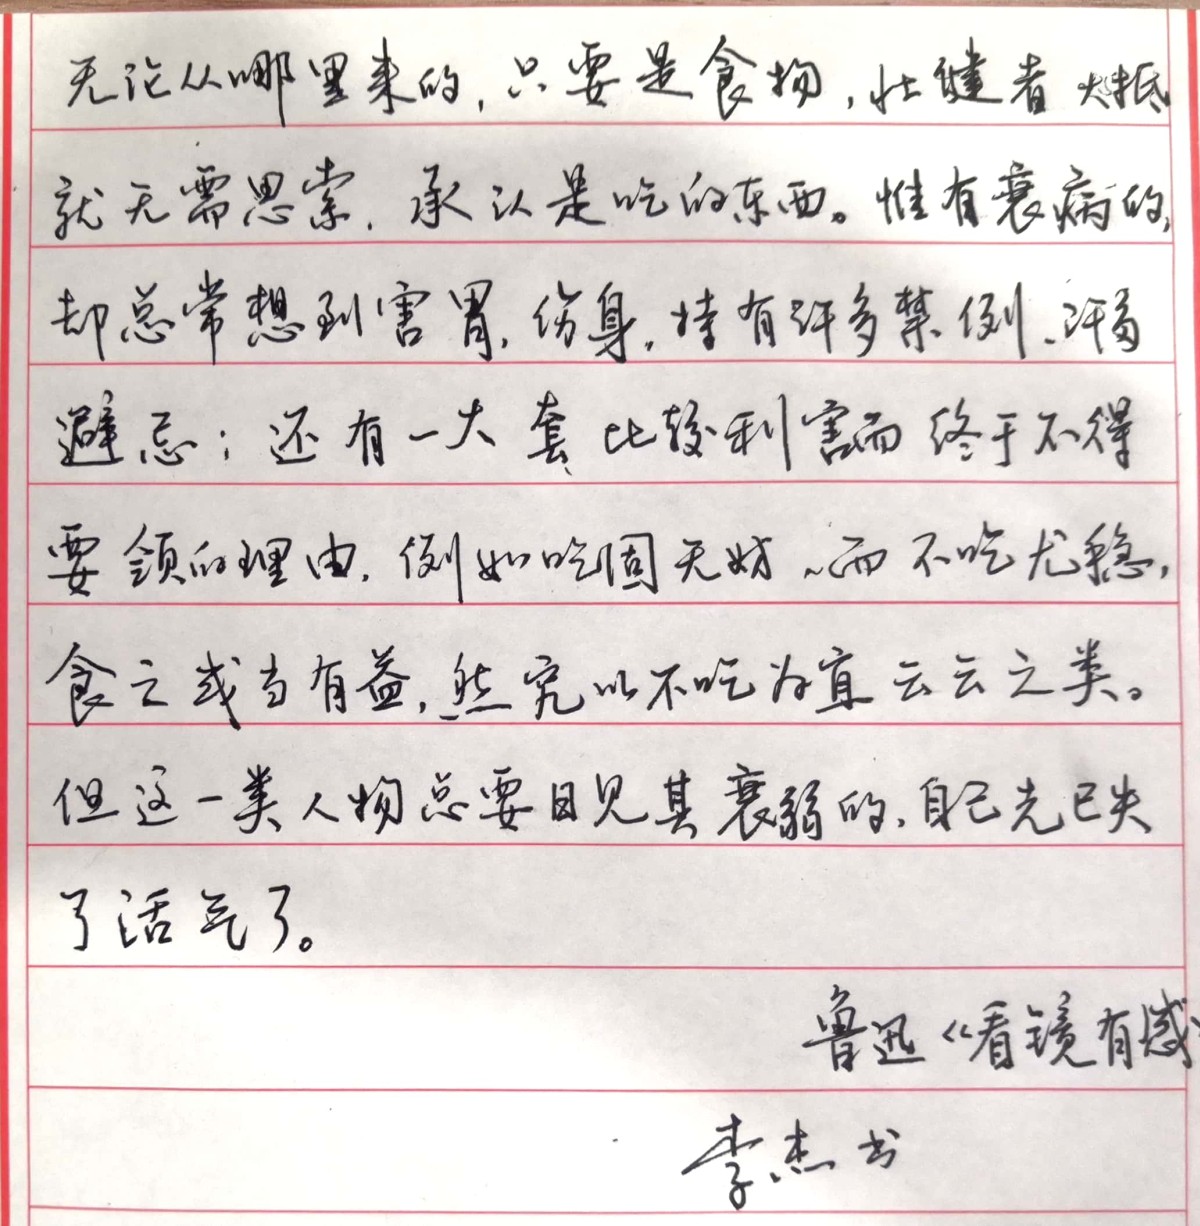 无论从哪里来的，只要是食物，壮健者大抵
就无需思索，承认是吃的东西。惟有衰病的，
却总常想到害胃，伤身，特有许多禁例、许多
避忌；还有一大套比较利害而终于不得
要领的理由，例如吃固无妨、而不吃尤稳，
食之或当有益，然究以不吃为宜云云之类。
但这一类人物总要日见其衰弱的，自己先已失
了活气了。
鲁迅《看镜有感》
李杰书